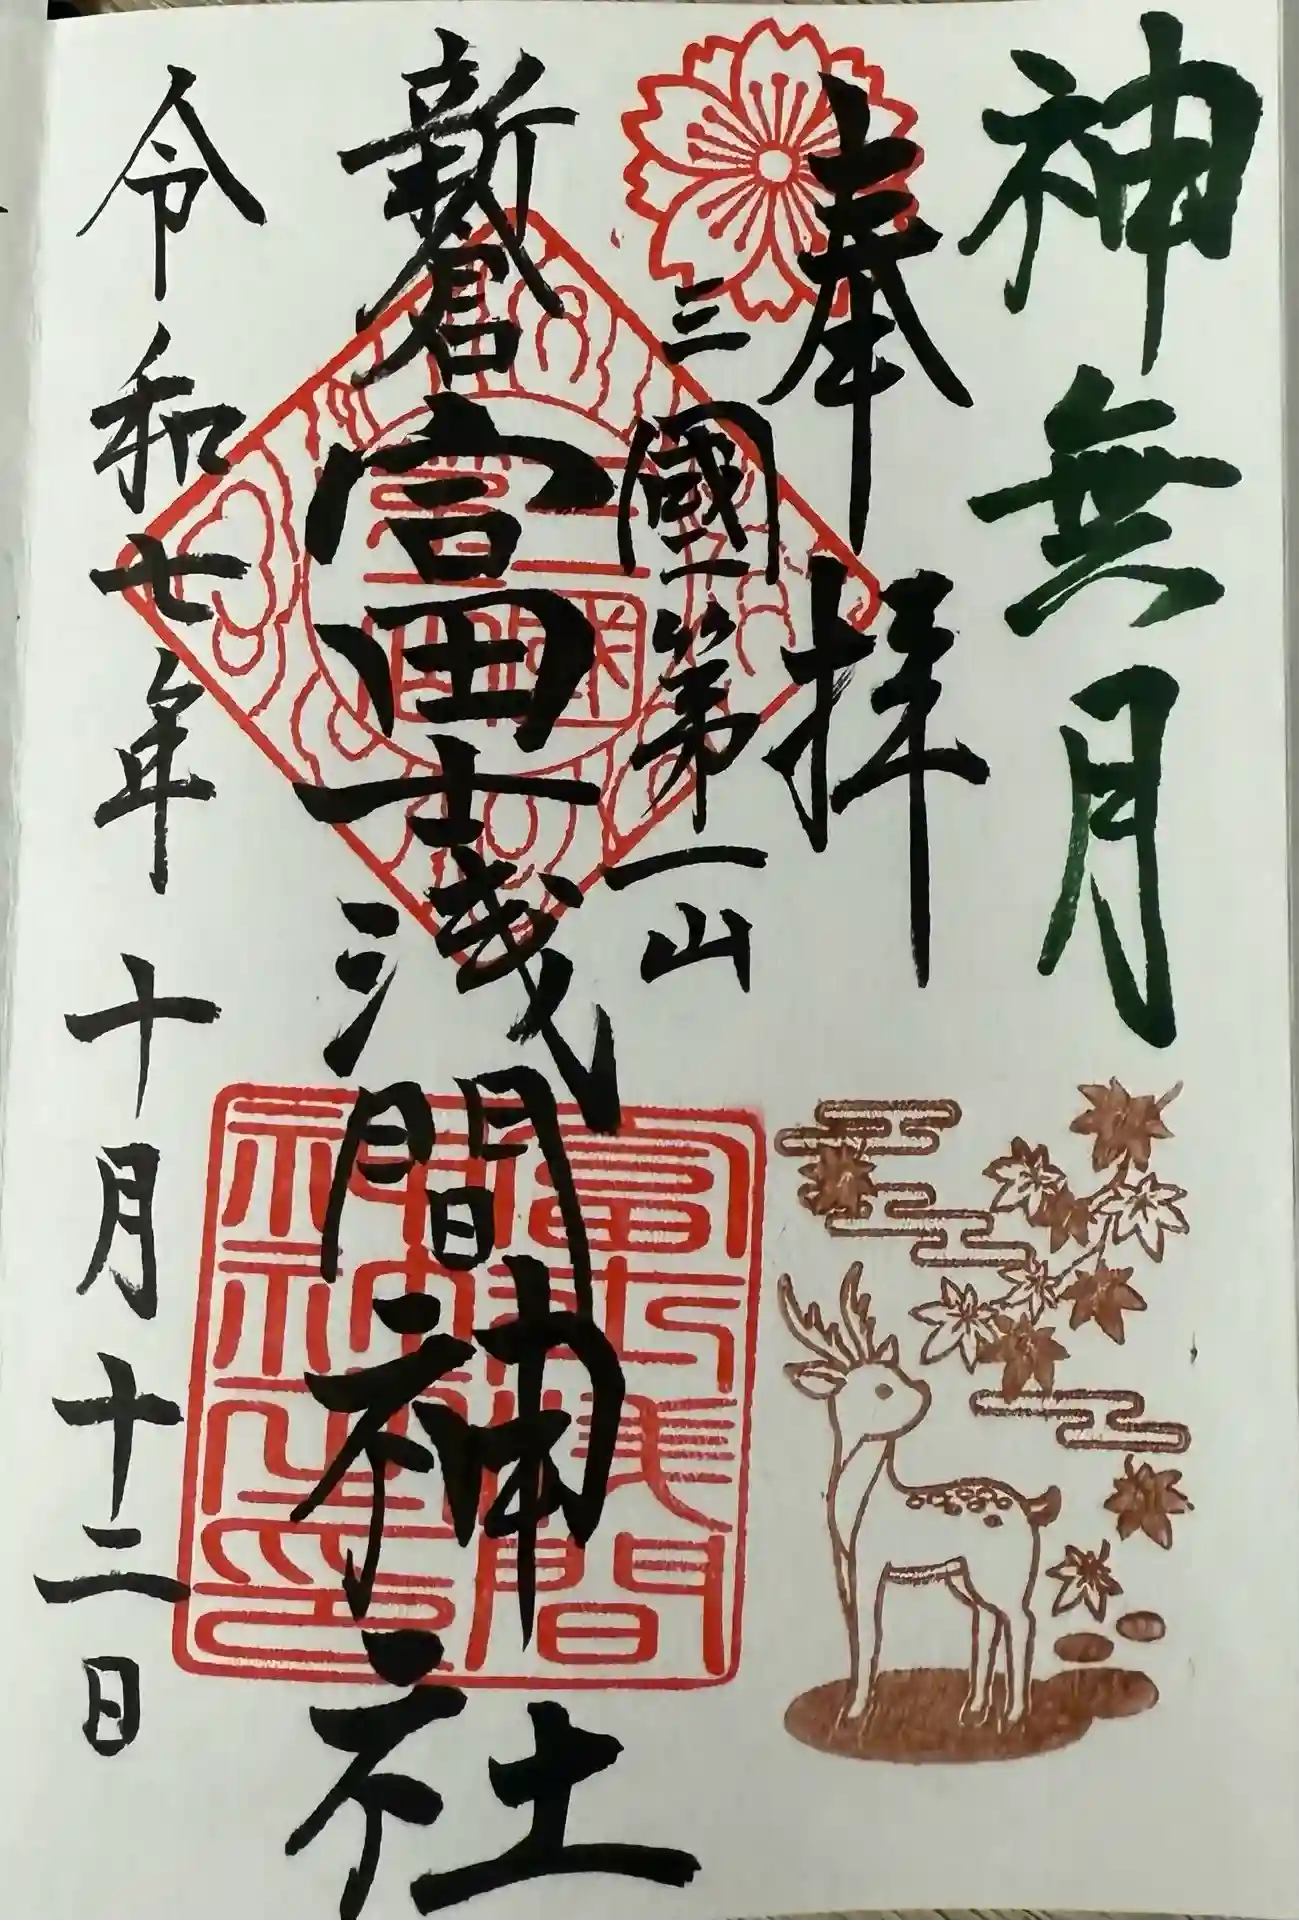 神無月
奉拝
三國第一山
新倉富士浅間神社
令和七年十月十二日
三國第一山
富士浅間神社之印